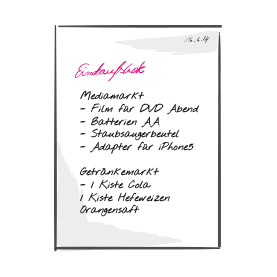 16.6.14
Einkaufsliste
Mediamarkt
- Film für DVD Abend
- Batterien AA
- Staubsaugerbeutel
- Adapter für iPhone5
Getränkemarkt
- 1 Kiste Cola
1 Kiste Hefeweizen
Orangensaft